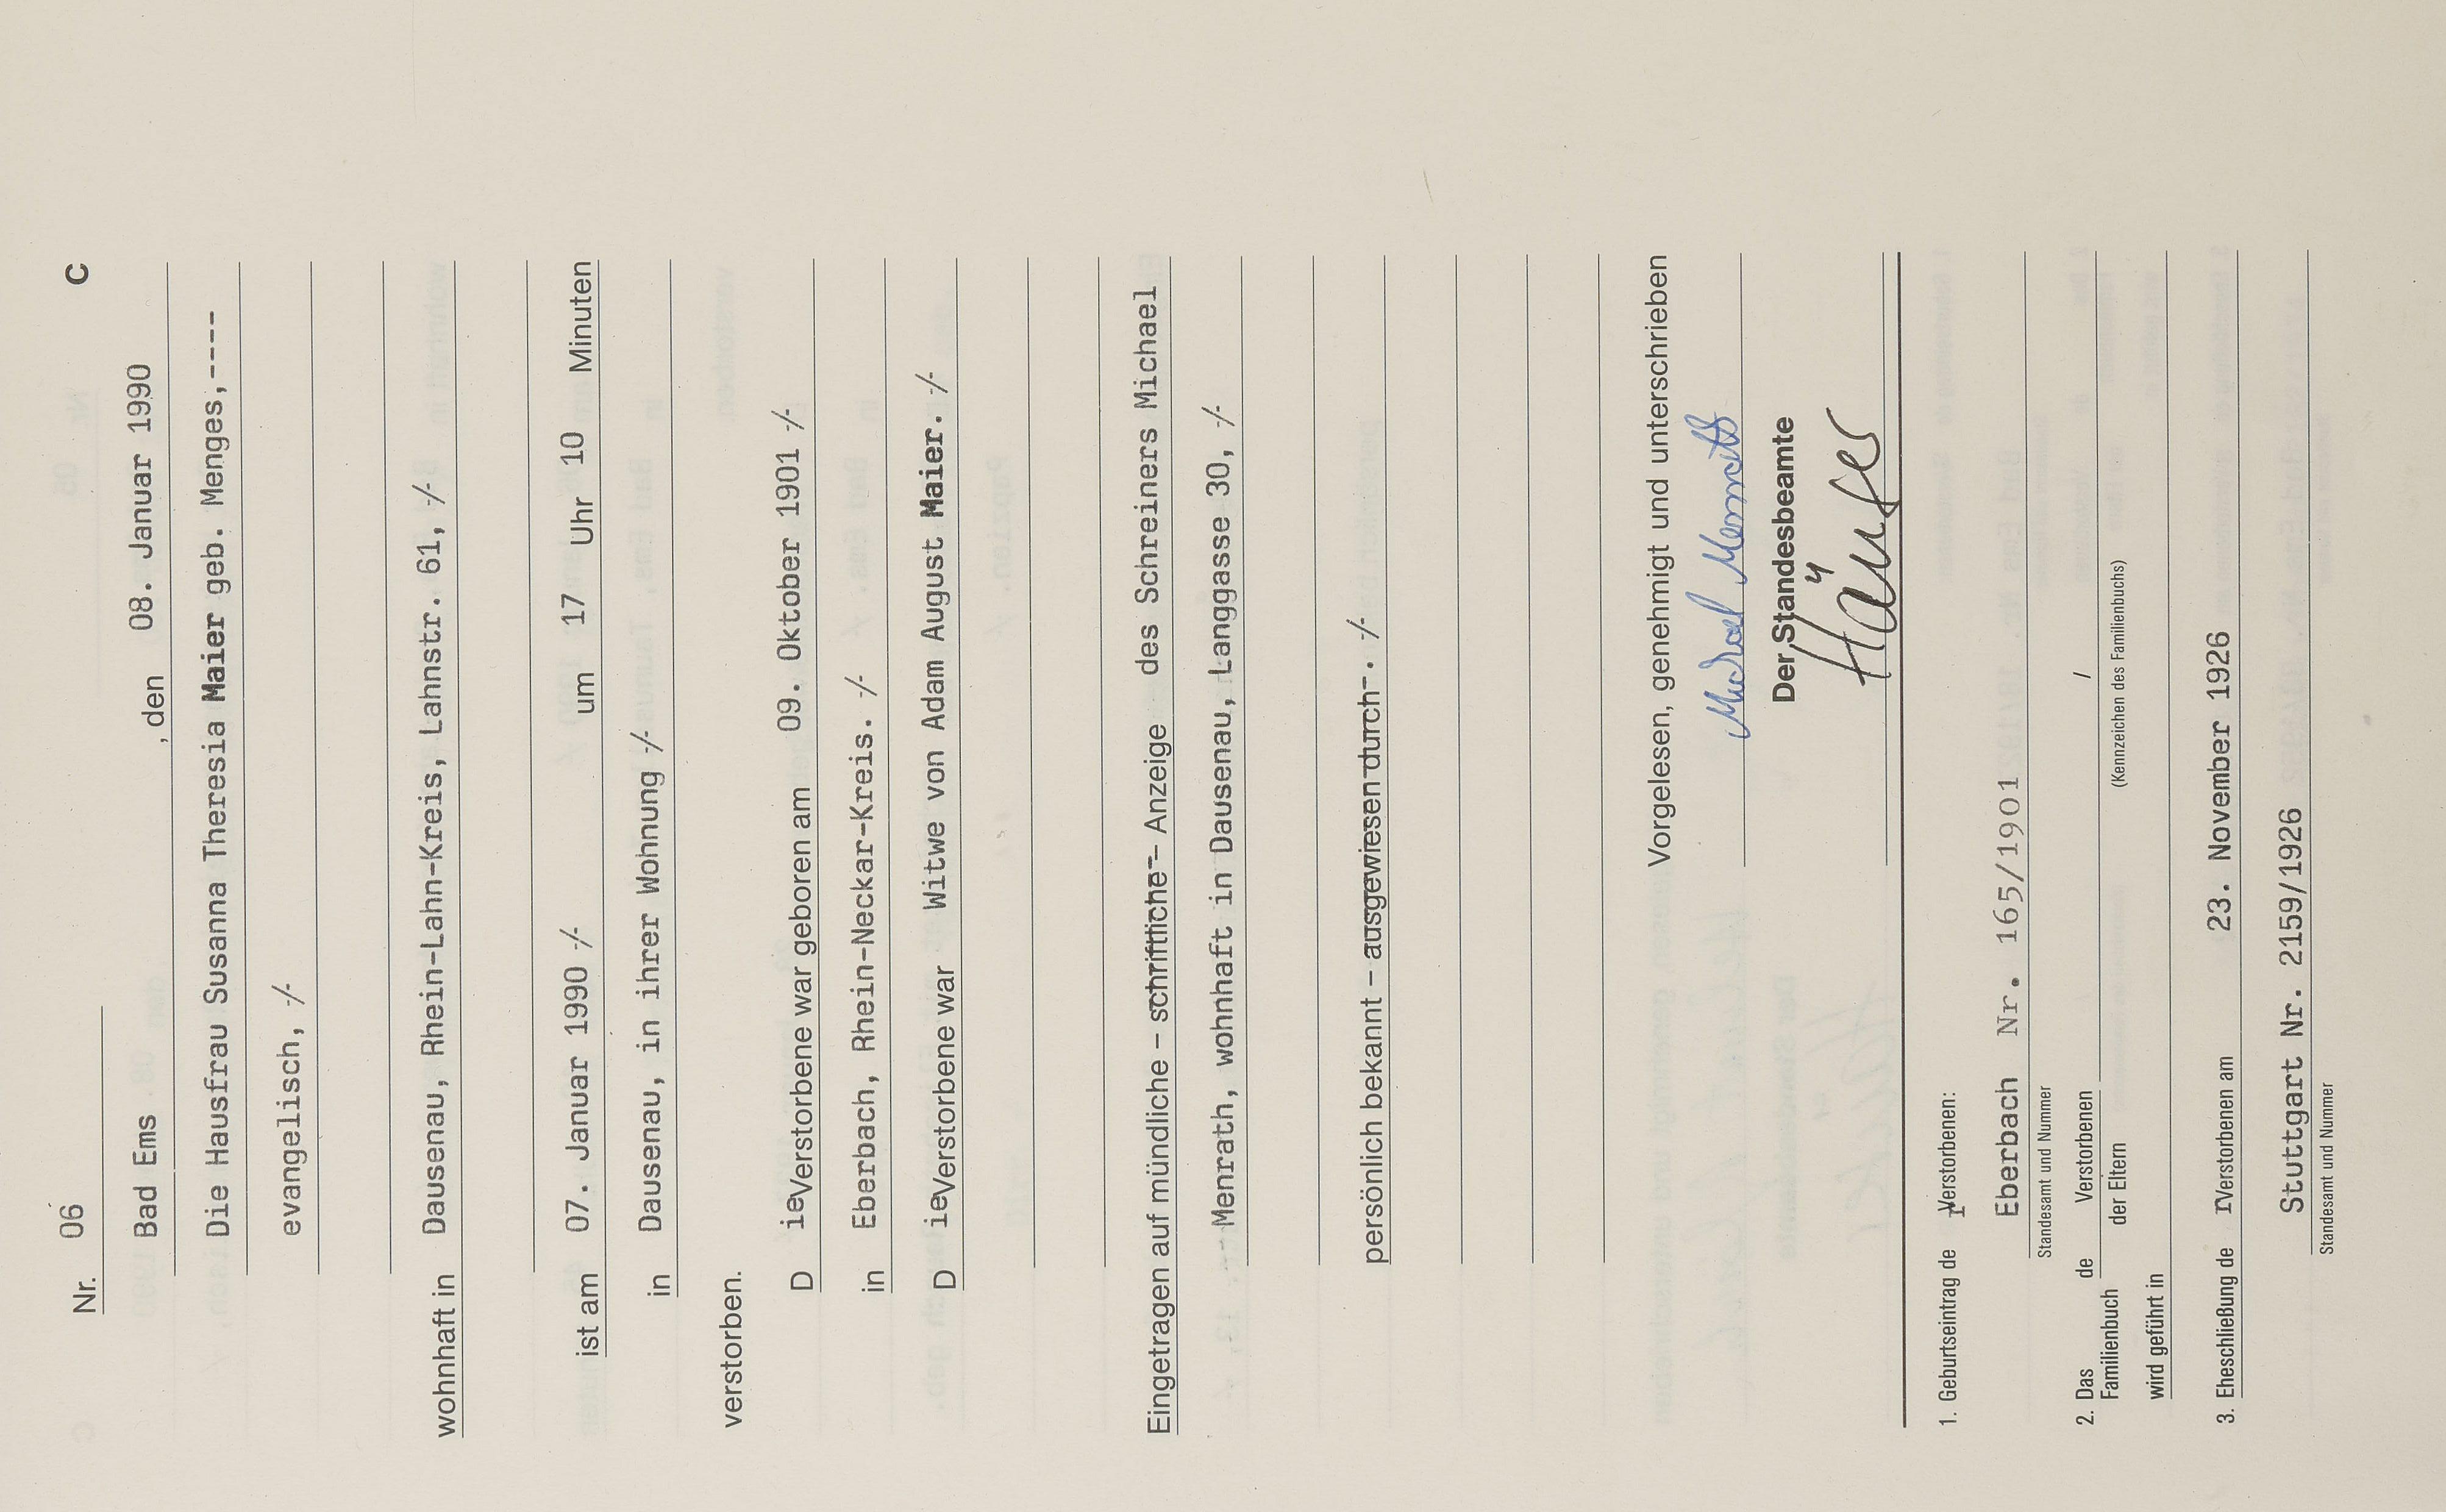 C
Nr. 06
Bad Ems , den 08. Januar 1990
Die Hausfrau Susanna Theresia Maier geb. Menges,----
evangelisch, -/-
wohnhaft in Dausenau, Rhein-Lahn-Kreis, Lahnstr. 61, -/-
ist am 07. Januar 1990 -/- um 17 Uhr 10 Minuten
in Dausenau, in ihrer Wohnung -/-
verstorben.
D ie Verstorbene war geboren am 09. Oktober 1901 -/-
in Eberbach, Rhein-Neckar-Kreis. -/-
D ie Verstorbene war Witwe von Adam August Maier. -/-
Eingetragen auf mündliche – schriftliche – Anzeige des Schreiners Michael
Menrath, wohnhaft in Dausenau, Langgasse 30, -/-
persönlich bekannt – ausgewiesen durch-. -/-
Vorgelesen, genehmigt und unterschrieben
Michael Menrath
Der Standesbeamte
Häuser
1. Geburtseintrag de r Verstorbenen:
Eberbach Nr. 165/1901
Standesamt und Nummer
2. Das Familienbuch de Verstorbenen /
der Eltern (Kennzeichen des Familienbuchs)
wird geführt in
3. Eheschließung de r Verstorbenen am 23. November 1926
Stuttgart Nr. 2159/1926
Standesamt und Nummer